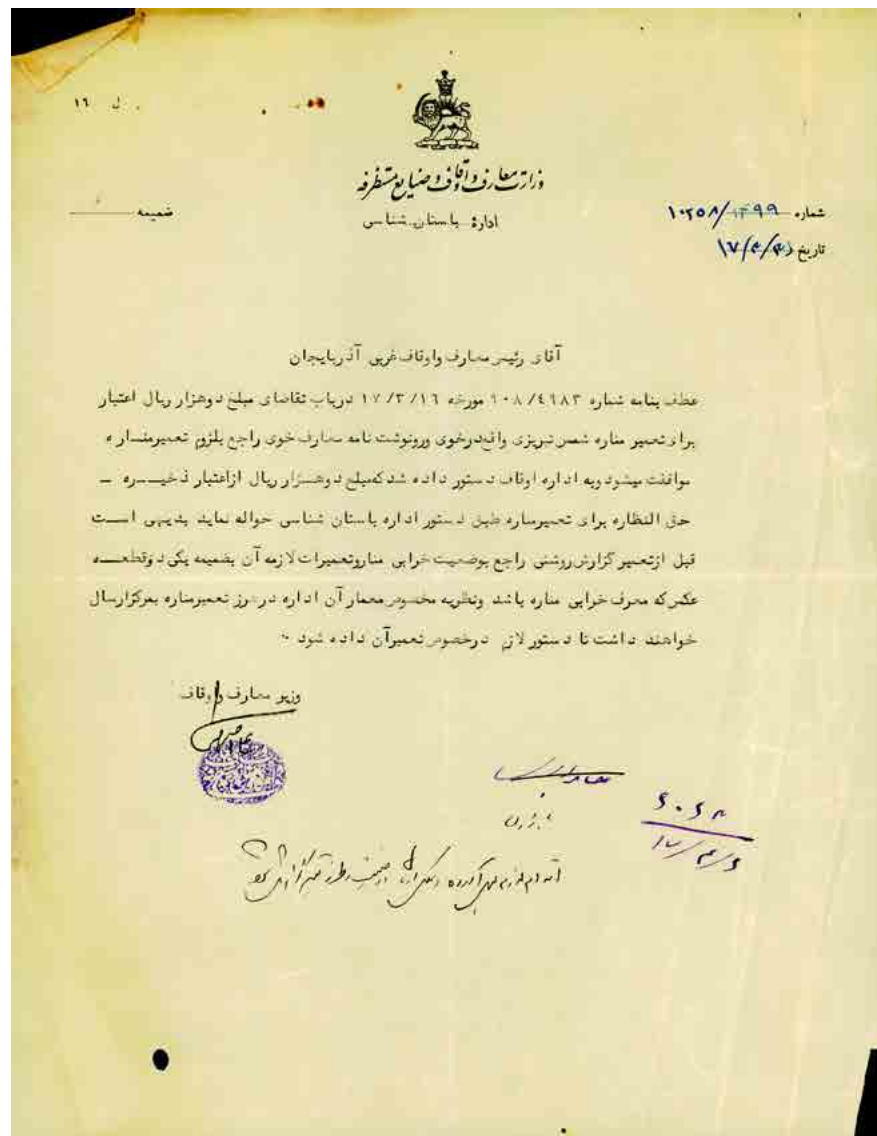 ل ١٦
وزارت معارف و اوقاف و صنایع مستظرفه
ادارهٔ باستان شناسی
شماره ١٠٢٥٨/١٢٩٩
ضمیمه
تاریخ
آقای رئیس معارف و اوقاف غربی آذربایجان
عطف بنامه شماره ٩٠٨/٤٦٨٣ مورخه ١٧/٣/١٦ درباب تقاضای مبلغ دوهزار ریال اعتبار
برای تعمیر مناره شمس تبریزی واقع درخوی ورونوشت نامه معارف خوی راجع بلزوم تعمیر مناره
موافقت میشود وبه اداره اوقاف دستور داده شد که مبلغ دوهزار ریال ازاعتبار ذخیره –
حق النظاره برای تعمیر مناره طبق دستور اداره باستان شناسی حواله نماید بدیهی است
قبل ازتعمیر گزارش روشنی راجع بوضعیت خرابی مناروتعمیرات لازمه آن بضمیمه یکی دوقطعه
عکس که معرف خرابی مناره باشد ونظریه مخصوص معمار آن اداره درطرز تعمیر مناره بمرکزارسال
خواهند داشت تا دستور لازم درخصوص تعمیرآن داده شود .
وزیر معارف و اوقاف
٦٠٦٨
١٧/٤/٦